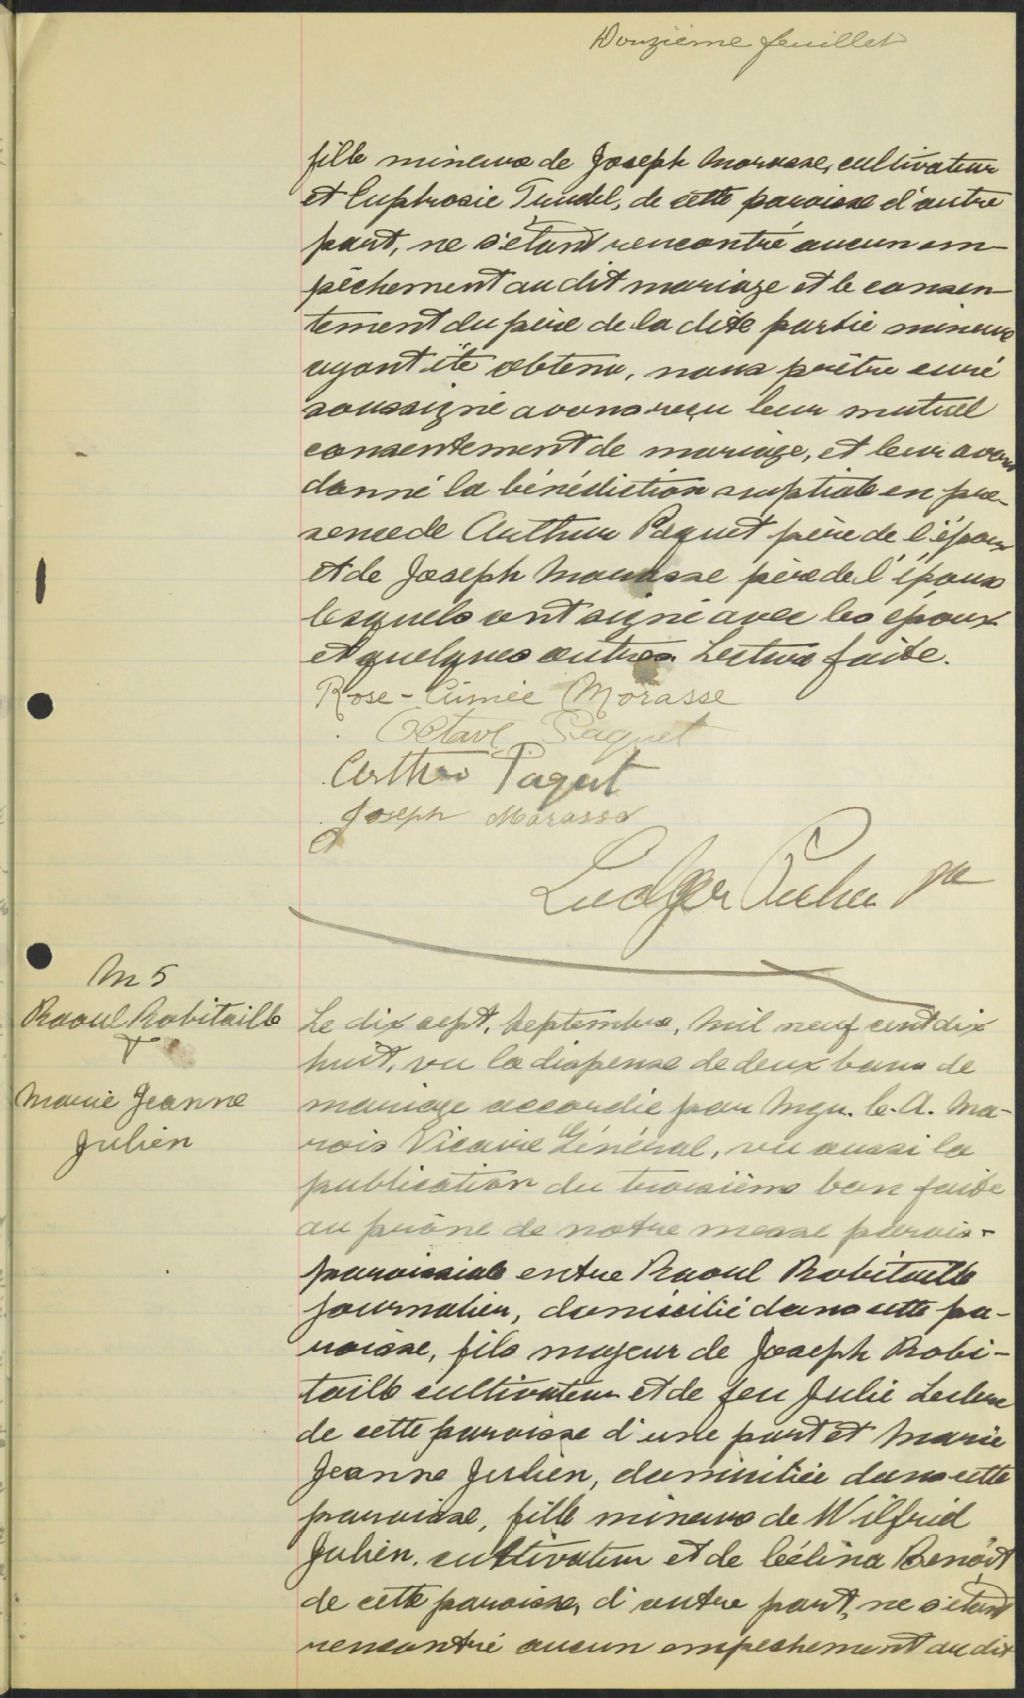 Douzième feuillet
fille mineure de Joseph Morasse, cultivateur
et Euphrosie Trudel, de cette paroisse d'autre
part, ne s'étant rencontré aucun em-
pêchement au dit mariage et le consen-
tement du père de la dite partie mineure
ayant été obtenu, nous prêtre curé
soussigné avons reçu leur mutuel
consentement de mariage, et leur avons
donné la bénédiction nuptiale en pré-
sence de Arthur Paquet père de l'époux
et de Joseph Morasse père de l'épouse
lesquels ont signé avec les époux
et quelques autres. Lecture faite.
Rose-Aimée Morasse
Octave Paquet
Arthur Paquet
Joseph Morasse
Ludger ptre
M 5
Raoul Robitaille
&
Marie Jeanne
Julien
Le dix sept, Septembre, mil neuf cent dix
huit, vu la dispense de deux bans de
mariage accordée par Mgr. C. A. Ma-
rois Vicaire Général, vu aussi la
publication du troisième ban faite
au prône de notre messe parois-
paroissiale entre Raoul Robitaille
journalier, domicilié dans cette pa-
roisse, fils majeur de Joseph Robi-
taille cultivateur et de feu Julie Leclerc
de cette paroisse d'une part et Marie
Jeanne Julien, domiciliée dans cette
paroisse, fille mineure de Wilfrid
Julien, cultivateur et de Célina Benoît
de cette paroisse, d'autre part, ne s'étant
rencontré aucun empêchement au dit